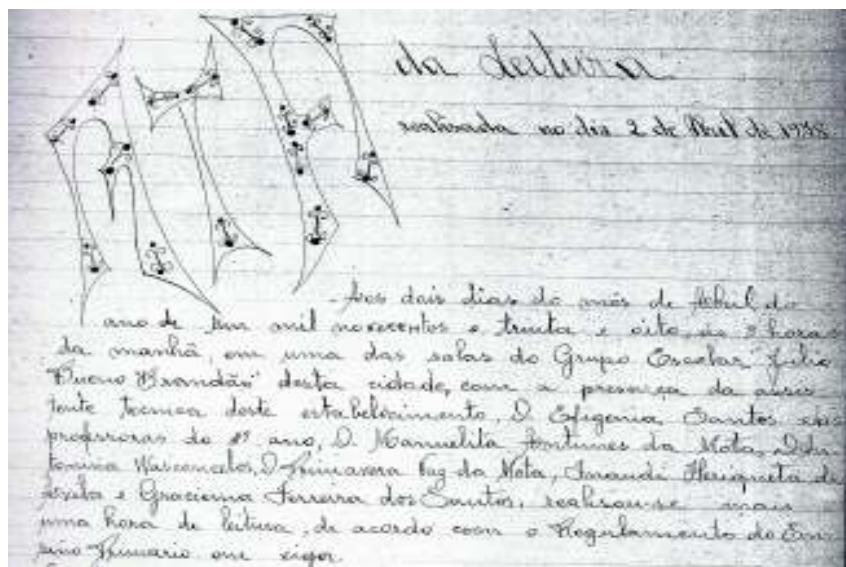 ATA da Leitura
realizada no dia 2 de Abril de 1938
Aos dois dias do mês de Abril do
ano de um mil novecentos e trinta e oito, ás 8 horas
da manhã, em uma das salas do Grupo Escolar "Julio
Bueno Brandão" desta cidade, com a presença da assis
tente tecnica deste estabelecimento, D. Efigenia Santos e as
professoras do ano, D. Manuelita Antunes da Mota,
Wasconcelos, D. Primavera da Mota, Iraudi Heriqueta de
e Graciema Ferreira dos Santos, realizou-se mais
uma hora de leitura, de acordo com o Regulamento do En
sino Primario em vigor.